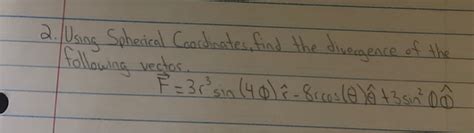 2. Using Spherical Coordinates, find the divergence of the
following vector.
F⃗ = 3r³ sin(4Φ) r̂ - 8rcos(θ) θ̂ + 3 sin² θ Φ̂